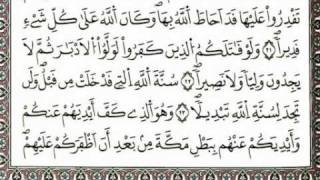 تَقْدِرُوا۟ عَلَيْهَا قَدْ أَحَاطَ ٱللَّهُ بِهَا وَكَانَ ٱللَّهُ عَلَىٰ كُلِّ شَىْءٍ
قَدِيرًا ۝٢١ وَلَوْ قَٰتَلَكُمُ ٱلَّذِينَ كَفَرُوا۟ لَوَلَّوُا۟ ٱلْأَدْبَٰرَ ثُمَّ لَا
يَجِدُونَ وَلِيًّا وَلَا نَصِيرًا ۝٢٢ سُنَّةَ ٱللَّهِ ٱلَّتِى قَدْ خَلَتْ مِن قَبْلُ وَلَن
تَجِدَ لِسُنَّةِ ٱللَّهِ تَبْدِيلًا ۝٢٣ وَهُوَ ٱلَّذِى كَفَّ أَيْدِيَهُمْ عَنكُمْ
وَأَيْدِيَكُمْ عَنْهُم بِبَطْنِ مَكَّةَ مِنۢ بَعْدِ أَنْ أَظْفَرَكُمْ عَلَيْهِمْ